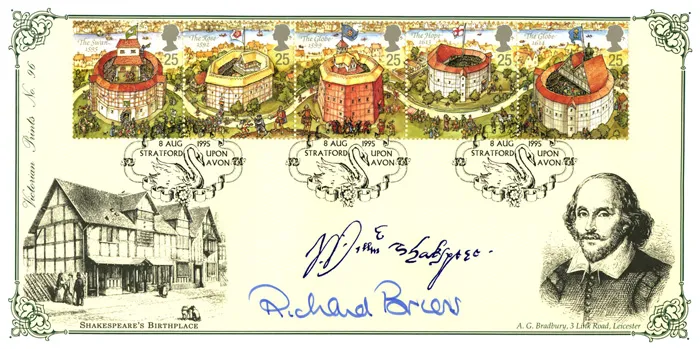 The Swan 1595 25
The Rose 1592 25
The Globe 1599 25
The Hope 1613 25
The Globe 1614 25
8 AUG 1995
STRATFORD UPON AVON
8 AUG 1995
STRATFORD UPON AVON
8 AUG 1995
STRATFORD UPON AVON
Victorian Prints No. 96
Shakspere
Richard Briers
SHAKESPEARE'S BIRTHPLACE
A. G. Bradbury, 3 Link Road, Leicester